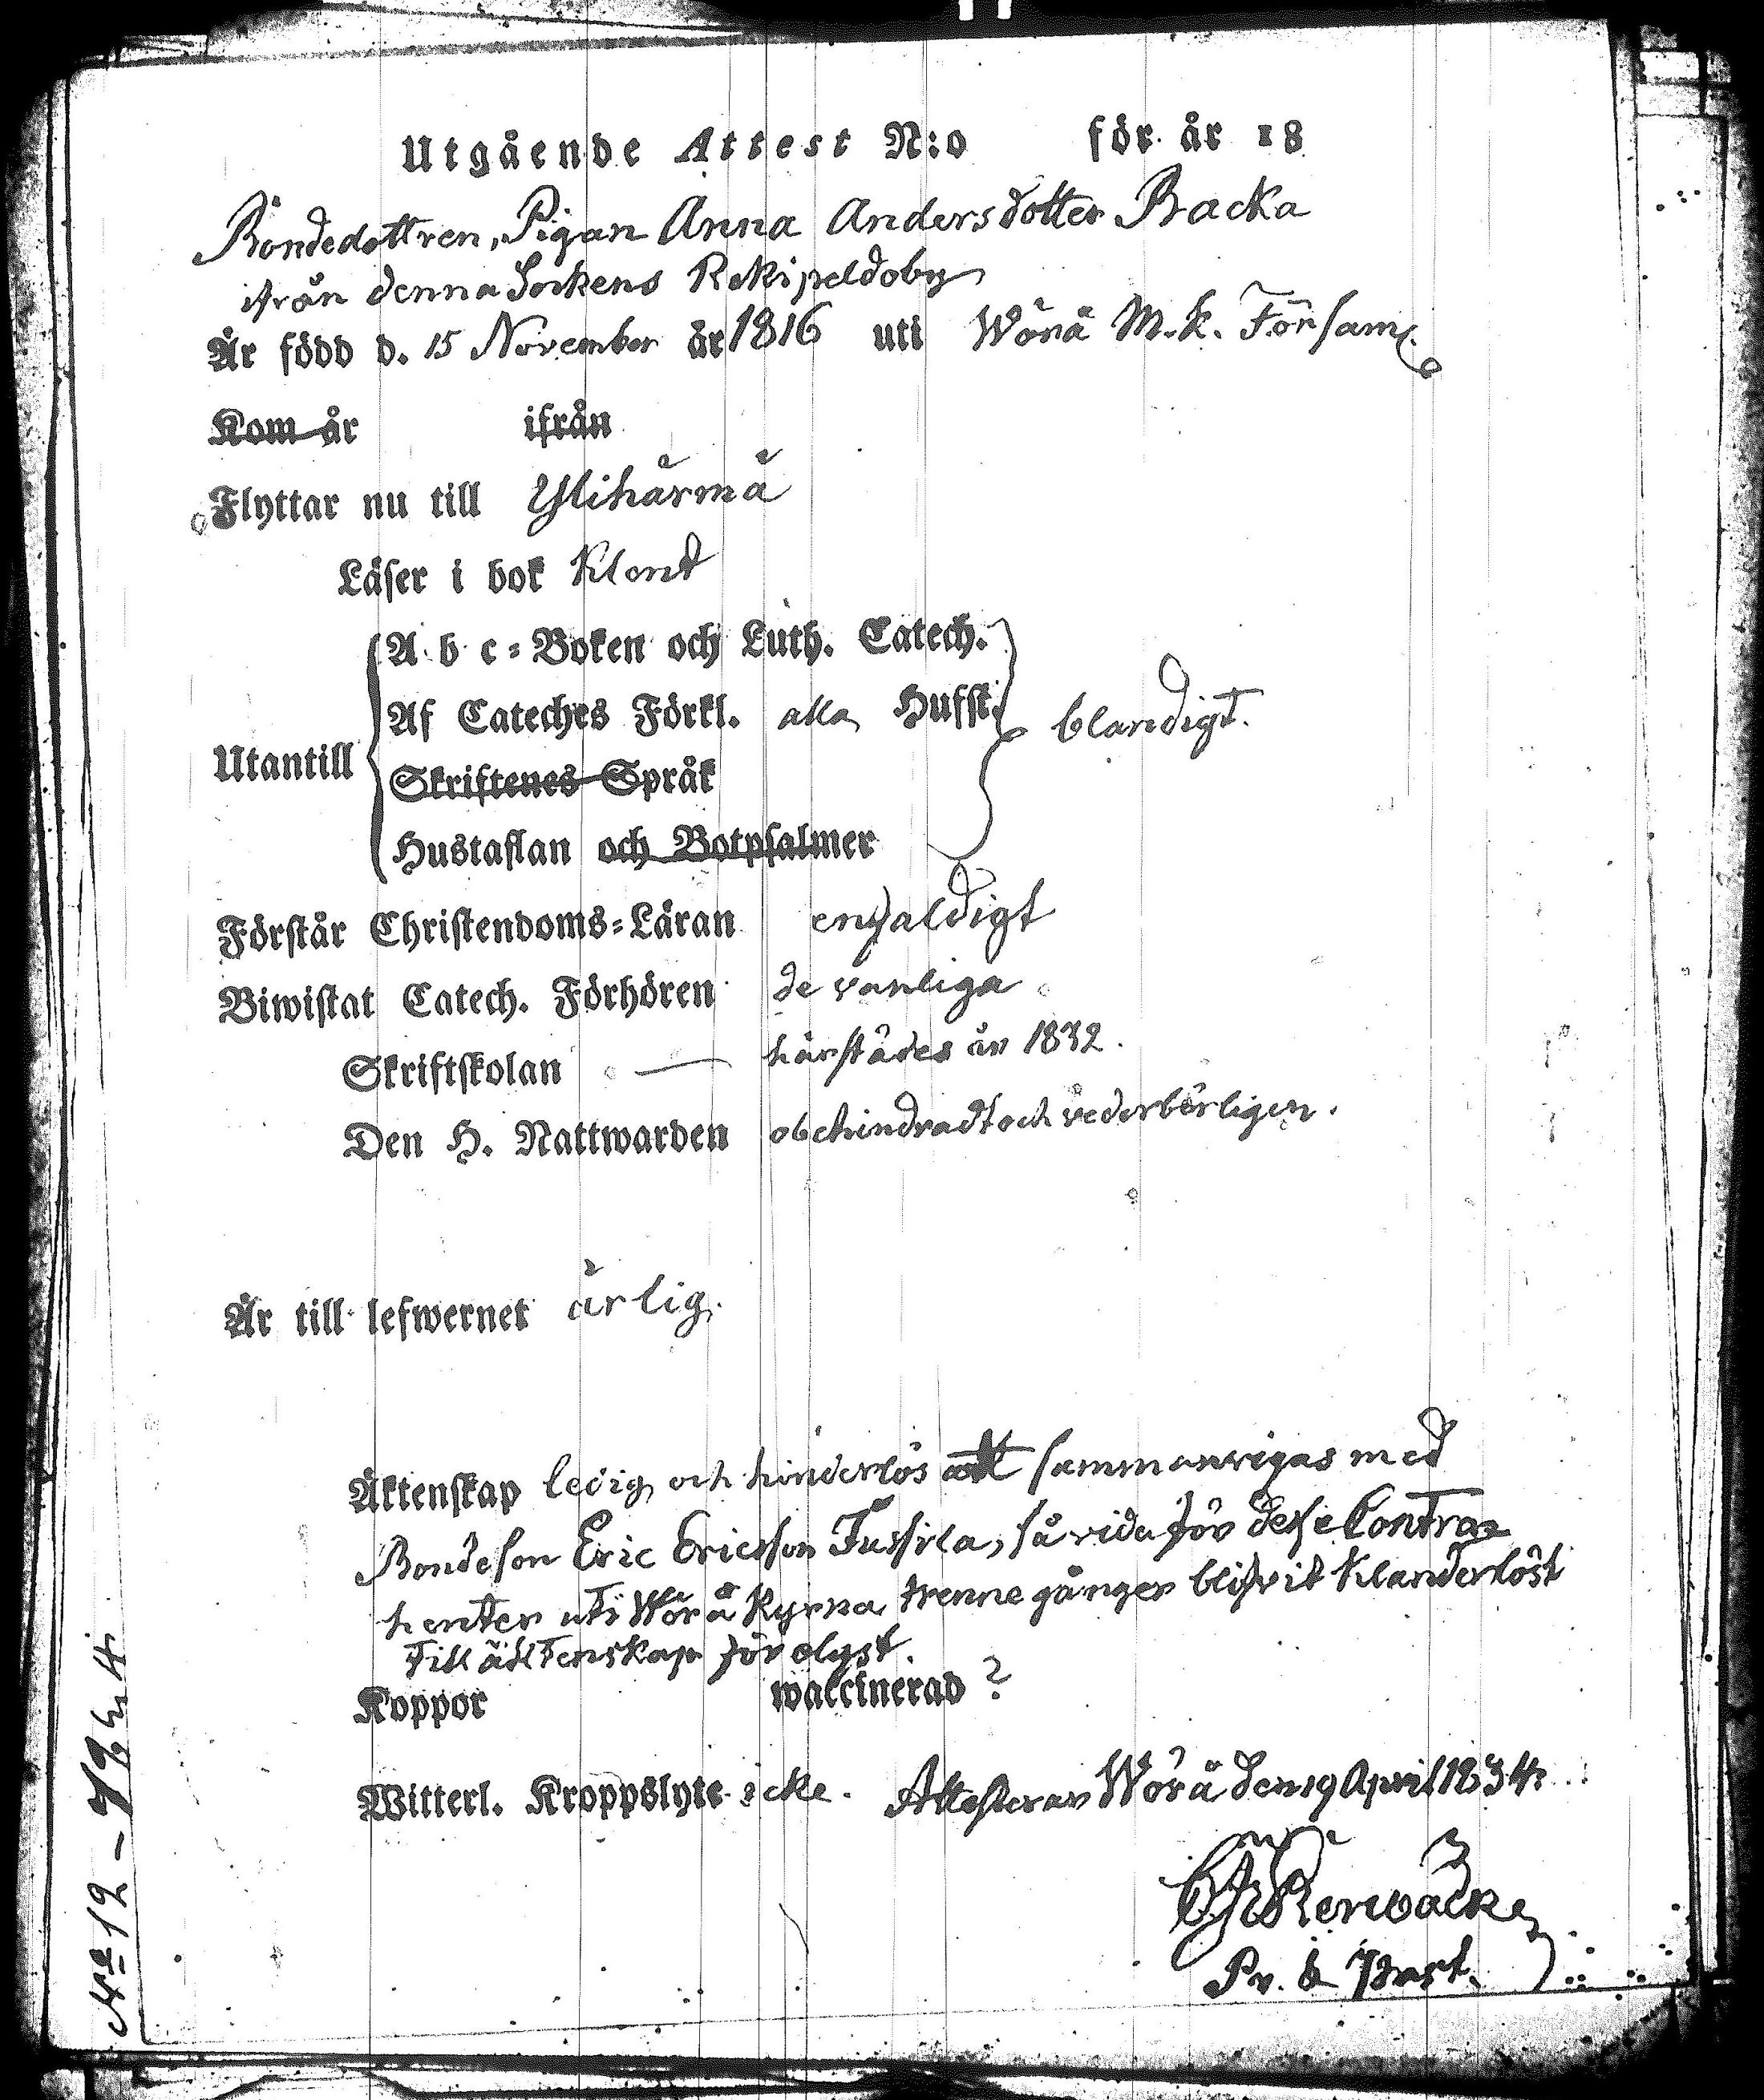 Utgående Attest N:o för år 18
Bondedottren, Pigan Anna Andersdotter Backa
ifrån denna Sockens Rekipeldoby
Är född d. 15 November år 1816 uti Wörå M. k. Församl.
Kom år ifrån
Flyttar nu till Ylihärmä
Läser i bok Klent
A b c-Boken och Luth. Catech.
Af Cateches Förkl. alla Hufst. blandigt.
Utantill
Skriftenes Språk
Hustaflan och Botpsalmer
Förstår Christendoms-Läran enfaldigt
Biwistat Catech. Förhören de vanliga
Skriftskolan — härstädes år 1832.
Den H. Nattwarden obehindradt och vederbörligen.
Är till lefwernet ärlig.
Äktenskap ledig och hinderlös att sammanvigas med
Bondeson Eric Ericsson Fussila, så vida för desse Contra-
henter uti Wörå Kyrka trenne gånger blifvit klanderlöst
till äktenskap förelyst.
Koppor waccinerad ?
Witterl. Kroppslyte icke. Attesterar Wörå den 19 April 1834.
Pr. & Past.
N:o 12 - 1834